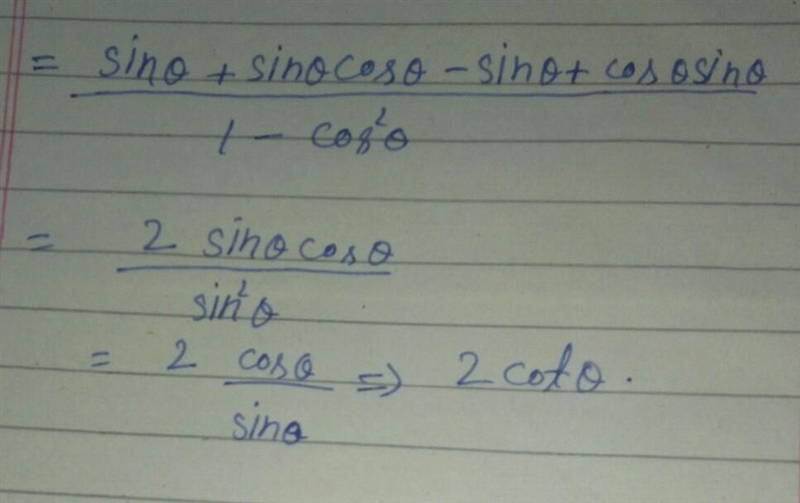 = sinθ + sinθcosθ - sinθ + cosθsinθ
1 - cos²θ
= 2 sinθcosθ
sin²θ
= 2 cosθ ⇒ 2cotθ.
sinθ